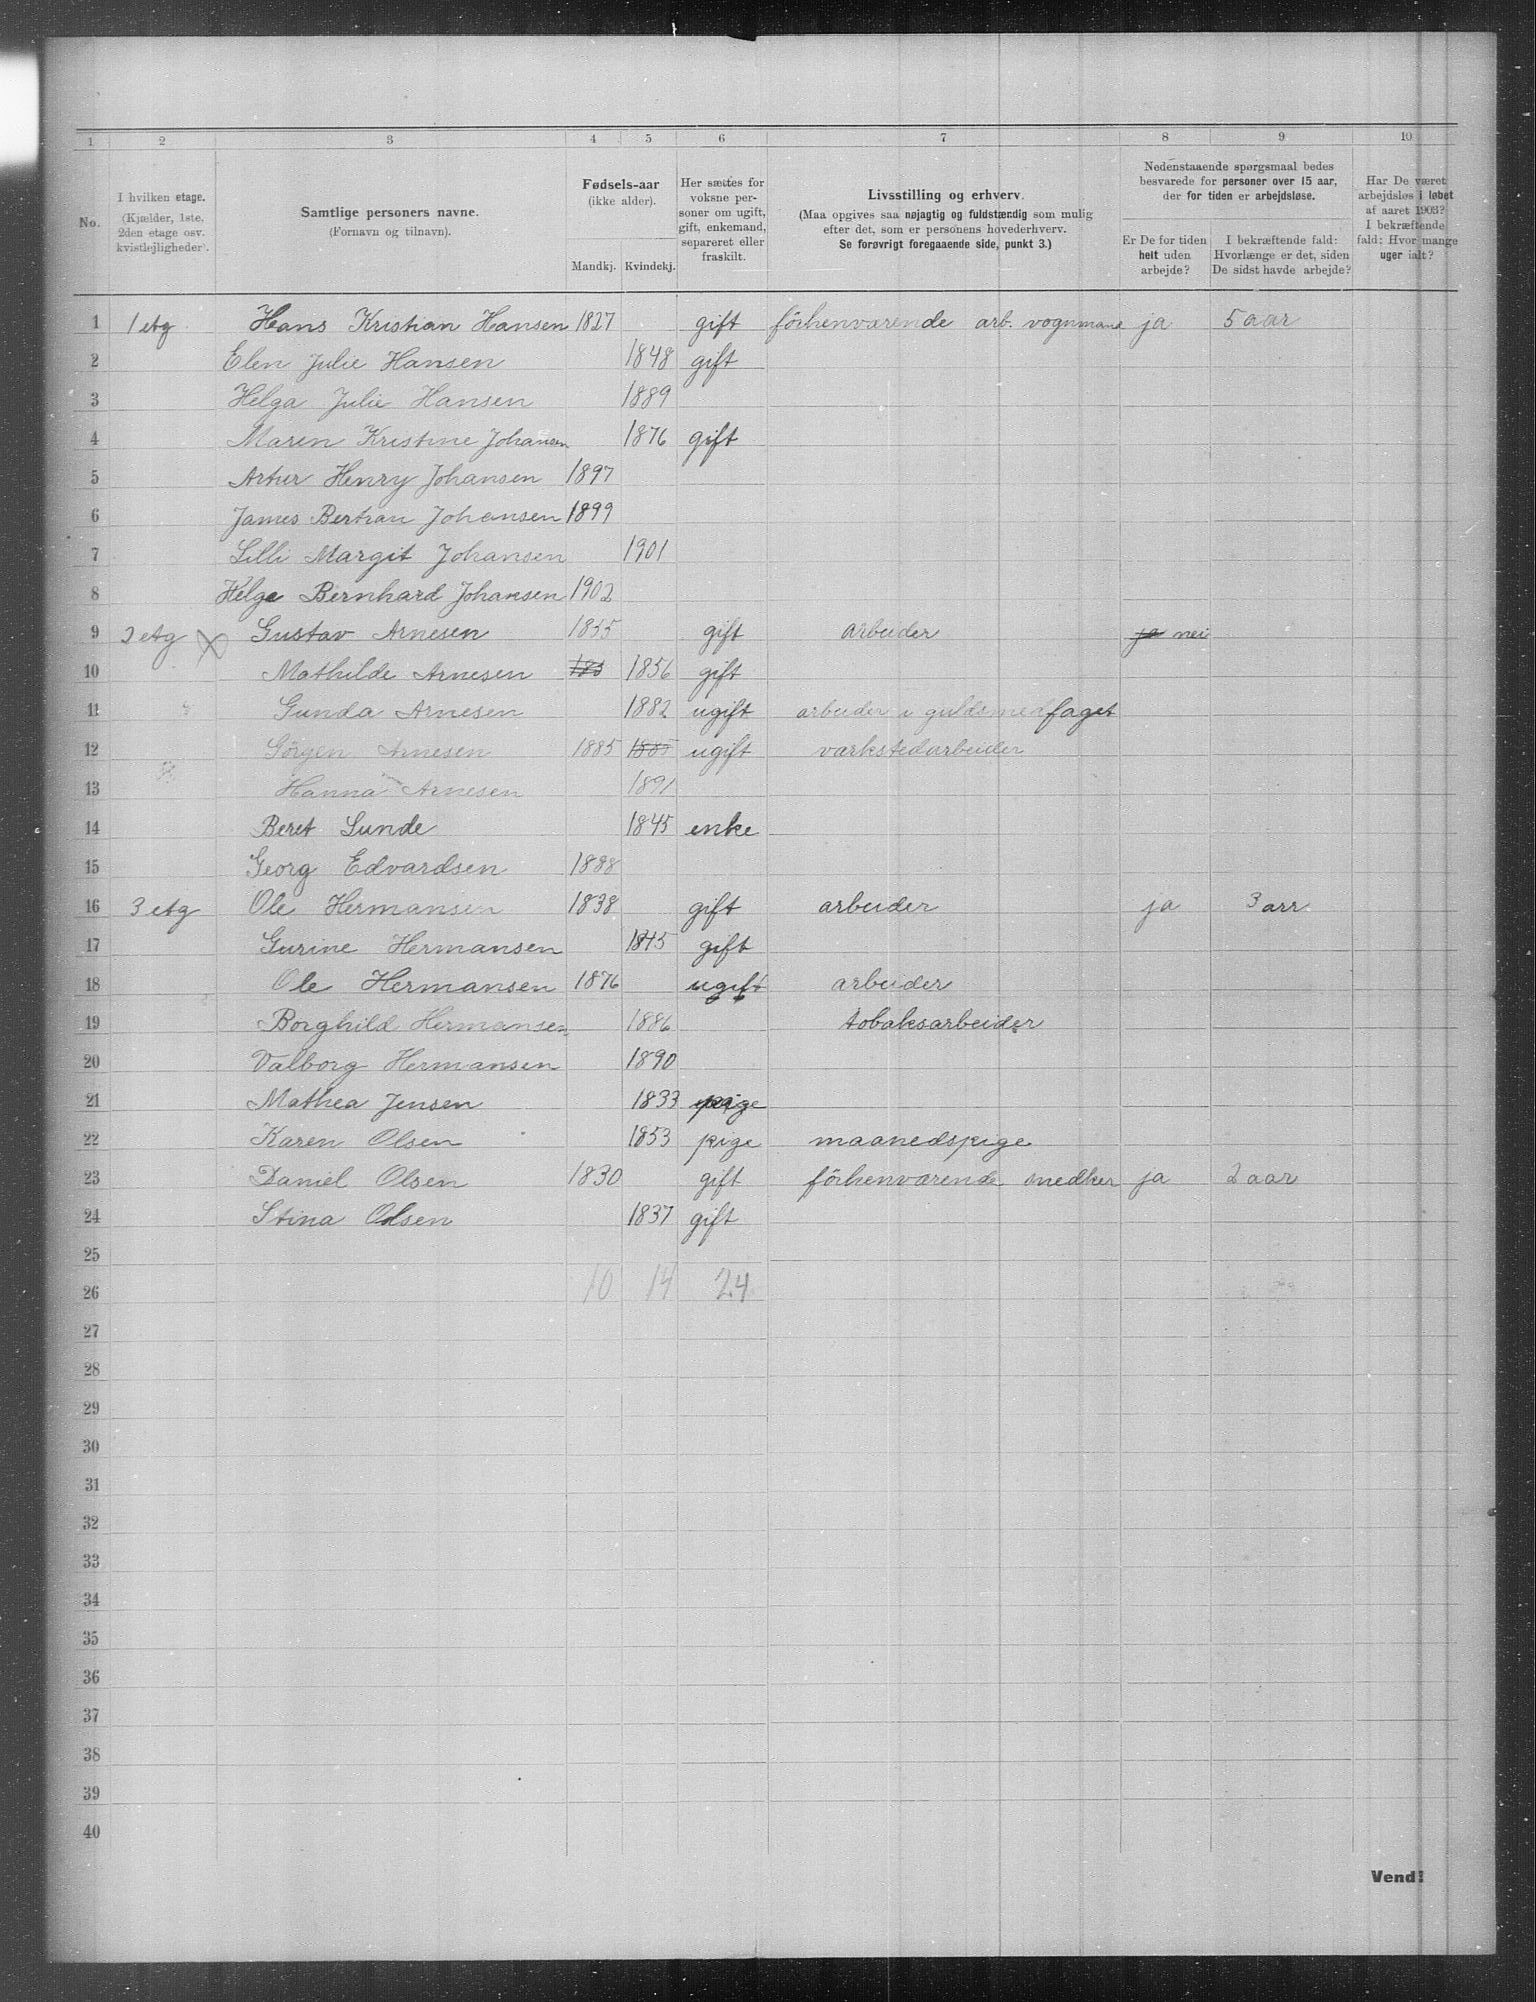 1 2 3 4 5 6 7 8 9 10
No.
I hvilken etage.
(Kjælder, 1ste, 2den etage osv. kvistlejligheder).
Samtlige personers navne.
(Fornavn og tilnavn).
Fødsels-aar
(ikke alder).
Mandkj. Kvindekj.
Her sættes for voksne personer om ugift, gift, enkemand, separeret eller fraskilt.
Livsstilling og erhverv.
(Maa opgives saa nøjagtig og fuldstændig som mulig efter det, som er personens hovederhverv.
Se forøvrigt foregaaende side, punkt 3.)
Nedenstaaende spørgsmaal bedes besvarede for personer over 15 aar, der for tiden er arbejdsløse.
Er De for tiden helt uden arbejde?
I bekræftende fald: Hvorlænge er det, siden De sidst havde arbejde?
Har De været arbejdsløs i løbet af aaret 1903? I bekræftende fald: Hvor mange uger ialt?
1 1 etg Hans Kristian Hansen 1827 gift förhenværende arb. vognmand ja 5 aar
2 Elen Julie Hansen 1848 gift
3 Helga Julie Hansen 1889
4 Maren Kristine Johansen 1876 gift
5 Artur Henry Johansen 1897
6 James Bertran Johansen 1899
7 Lilli Margit Johansen 1901
8 Helge Bernhard Johansen 1902
9 2 etg X Gustav Arnesen 1855 gift arbeider ja nei
10 Mathilde Arnesen 185 1856 gift
11 Gunda Arnesen 1882 ugift arbeider i guldsmedfaget
12 Görgen Arnesen 1885 1885 ugift værkstedarbeider
13 Hanna Arnesen 1891
14 Beret Sunde 1845 enke
15 Georg Edvardsen 1888
16 3 etg Ole Hermansen 1838 gift arbeider ja 3 arr
17 Gurine Hermansen 1845 gift
18 Ole Hermansen 1876 ugift arbeider
19 Borghild Hermansen 1886 tobaksarbeider
20 Valborg Hermansen 1890
21 Mathea Jensen 1833 pige
22 Karen Olsen 1853 pige maanedspige
23 Daniel Olsen 1830 gift förhenværende snedker ja 2 aar
24 Stina Olsen 1837 gift
25
26 10 14 24
27
28
29
30
31
32
33
34
35
36
37
38
39
40
Vend!